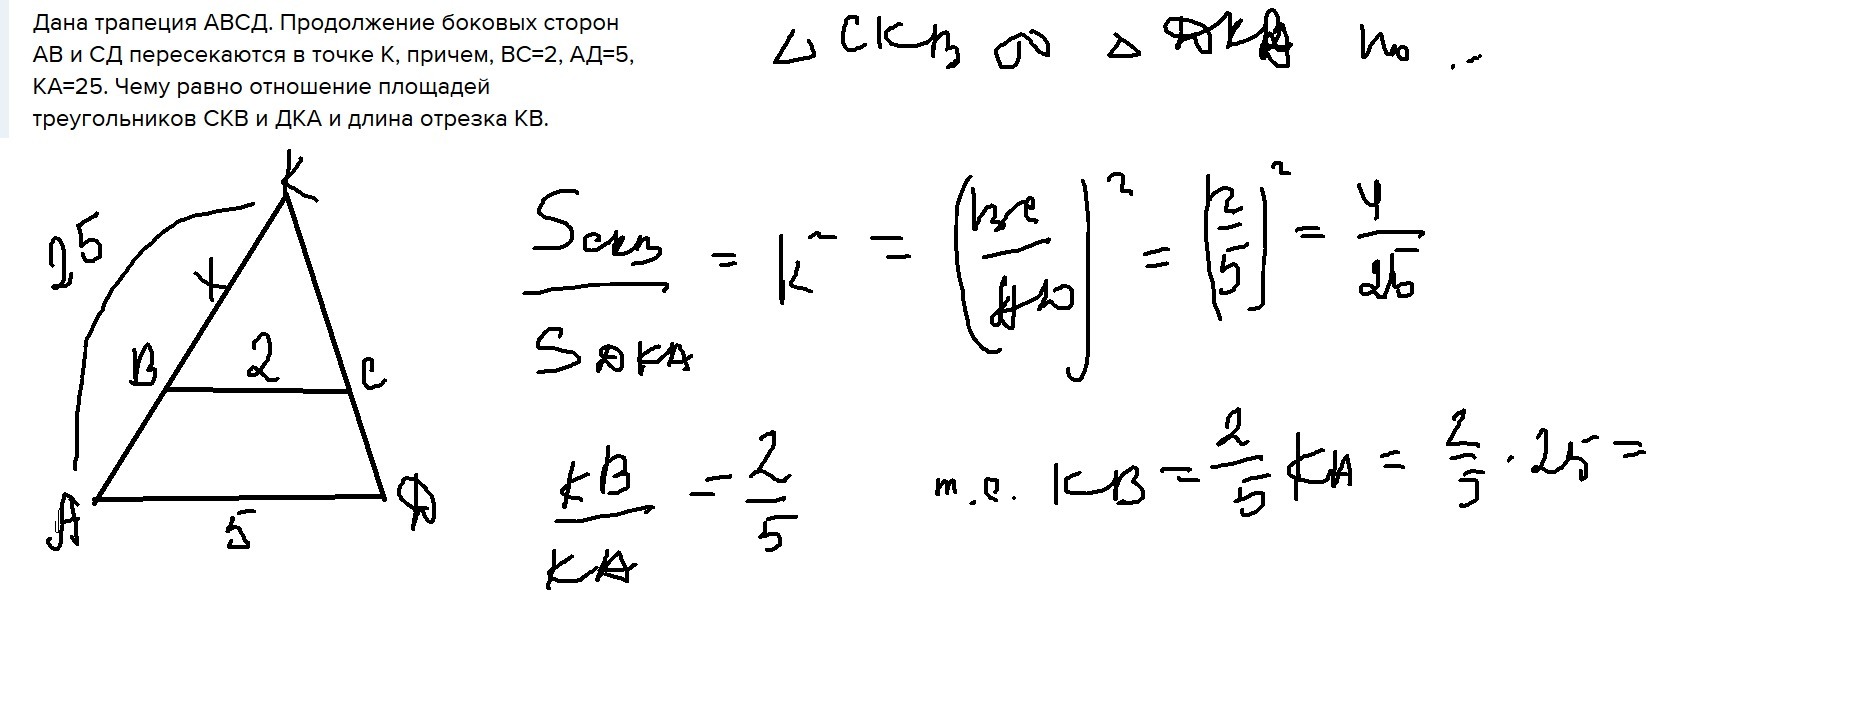 Дана трапеция АВСД. Продолжение боковых сторон
АВ и СД пересекаются в точке К, причем, ВС=2, АД=5,
КА=25. Чему равно отношение площадей
треугольников СКВ и ДКА и длина отрезка КВ.
△ СКВ ∾ △ ДКА по ...
К
25
x
В 2 С
А 5 Д
S СКВ / S ДКА = k² = (ВС/АД)² = (2/5)² = 4/25
КВ/КА = 2/5 т.е. КВ = 2/5 КА = 2/5 · 25 =